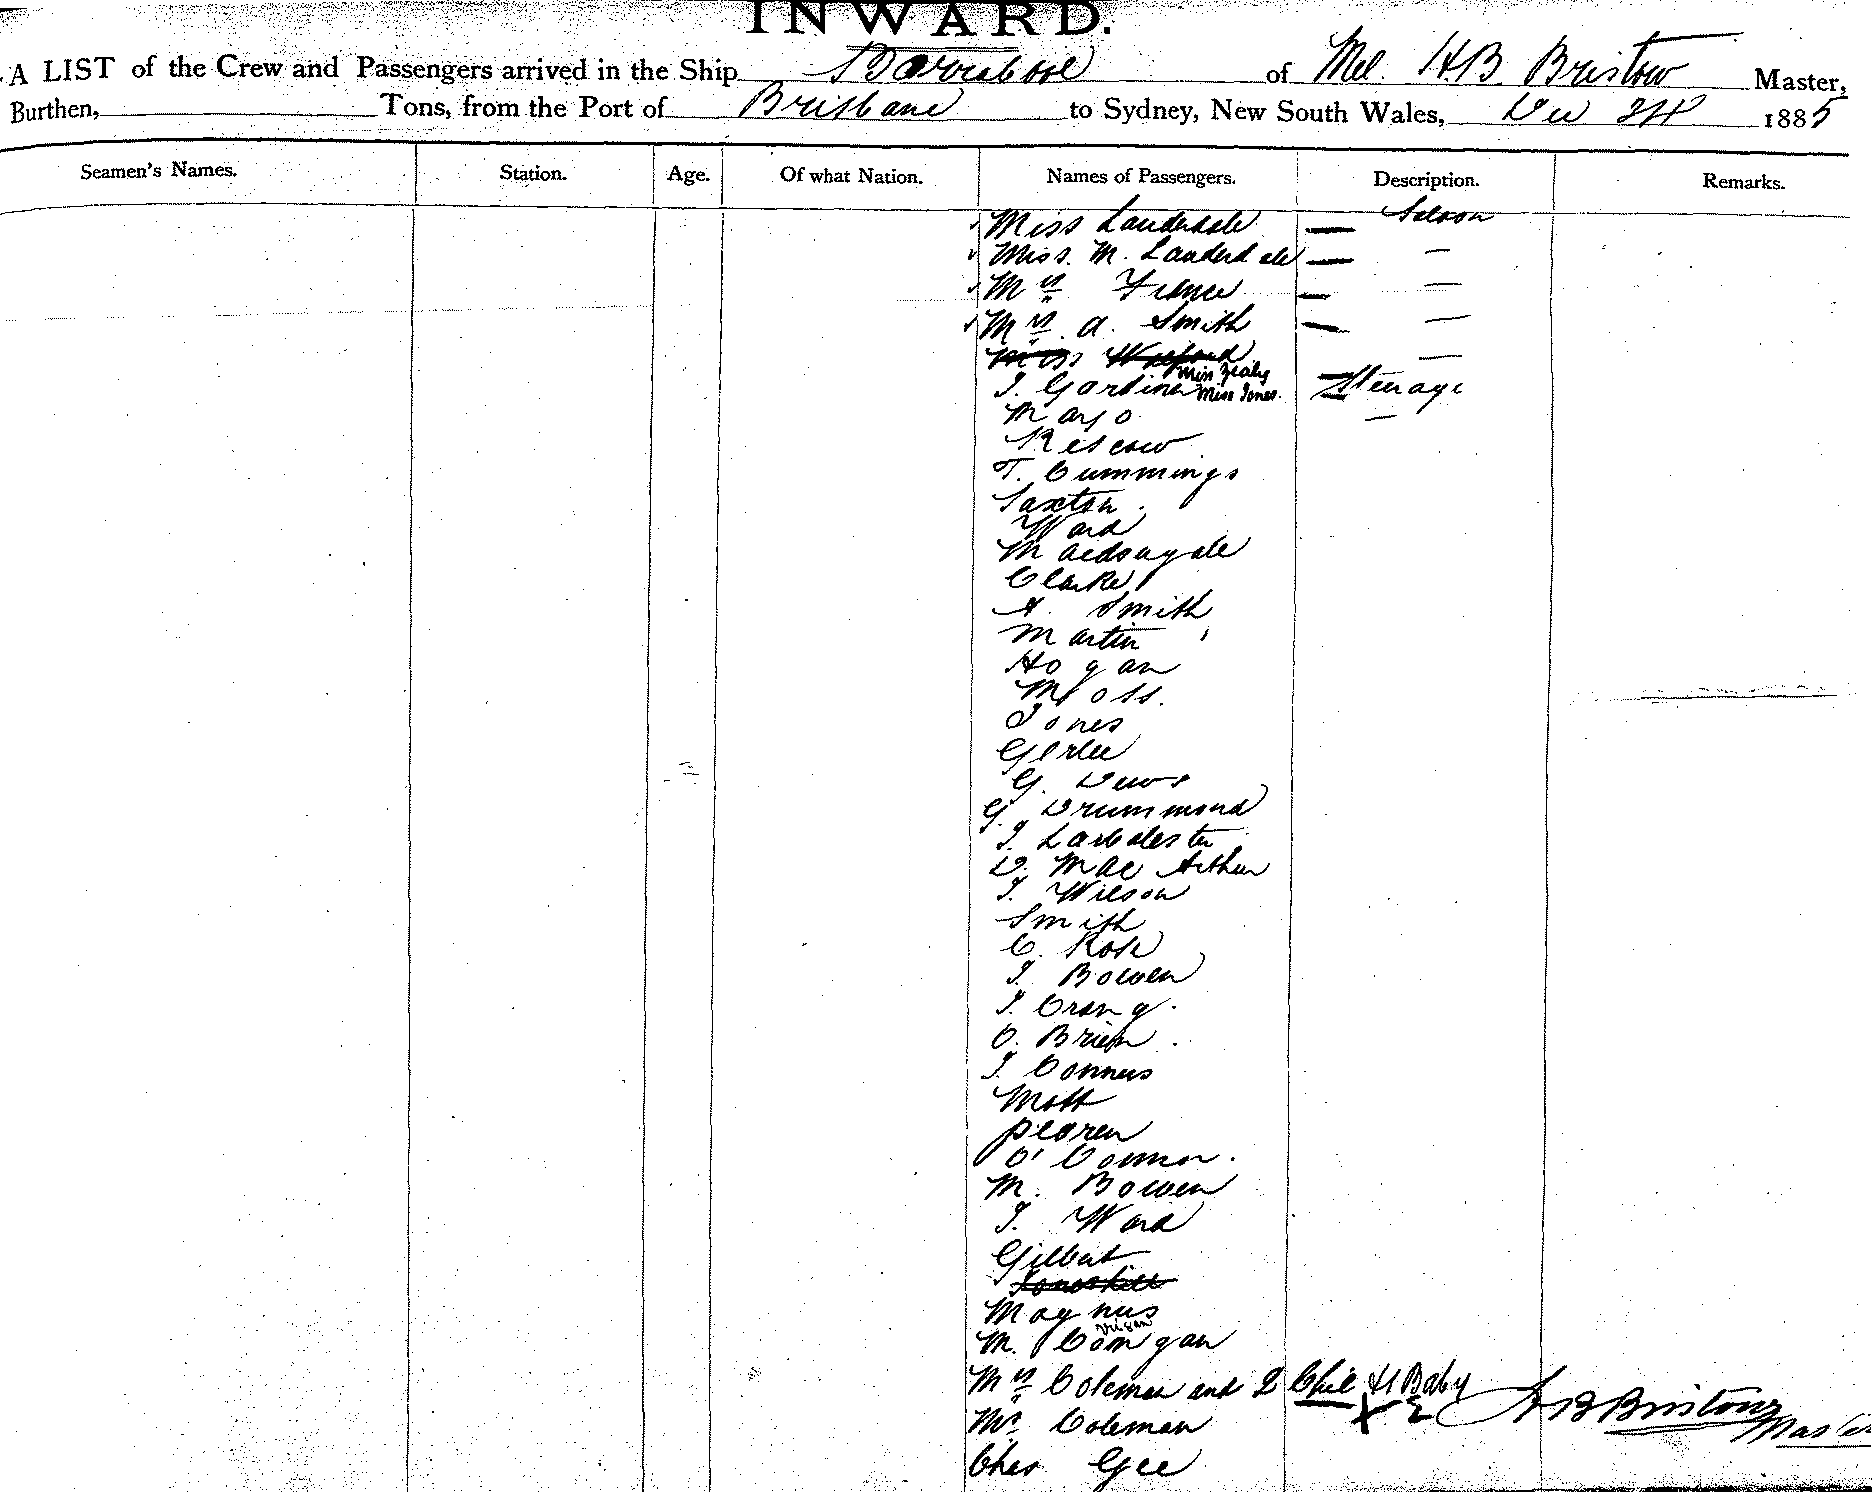 INWARD.
A LIST of the Crew and Passengers arrived in the Ship Barrabool of Mel. H B Bristow Master,
Burthen, Tons, from the Port of Brisbane to Sydney, New South Wales, Dec 24 1885
Seamen's Names. Station. Age. Of what Nation. Names of Passengers. Description. Remarks.
Miss Lauderdale — Saloon
Miss. M. Lauderdale — —
Mrs France — —
Mrs. A. Smith — —
Miss —
Miss Jones.
J. Gardiner Steerage
Mayo —
T. Cummings
Saxton
Ward
Macdougale
Clarke
A. Smith
Martin
Hogan
Moss.
Jones
G. Dews
G. Drummond
J. Larbalester
D. Mac Arthur
J. Wilson
Smith
C. Rose
J. Bowen
J. Crang.
O. Brien
J. Conners
Mott
O' Connor.
M. Bowen
J. Ward
Gilbert
Magnus
M. Corrigan
Mrs Coleman and 2 Chil & 1 Baby
Mr. Coleman H B Bristow Master
Chas Gee